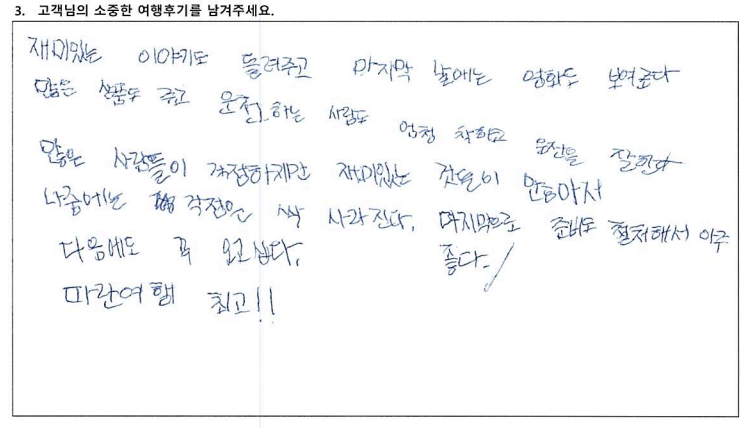 3. 고객님의 소중한 여행후기를 남겨주세요.
재미있는 이야기도 들려주고 마지막 날에는 영화도 보여준다
많은 선품도 주고 운전하는 사람도 엄청 착하고 운전을 잘한다
많은 사람들이 걱정하지만 재미있는 것들이 많아서
나중에는 걱정은 싹 사라진다. 마지막으로 준비도 철처해서 아주
좋다.
다음에도 꼭 오고 십다.
파란여행 최고!!